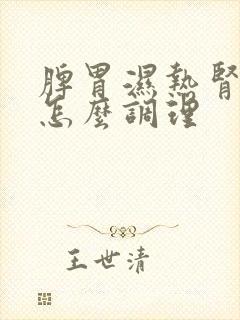 脾胃濕熱腎
怎麼調理
王世清